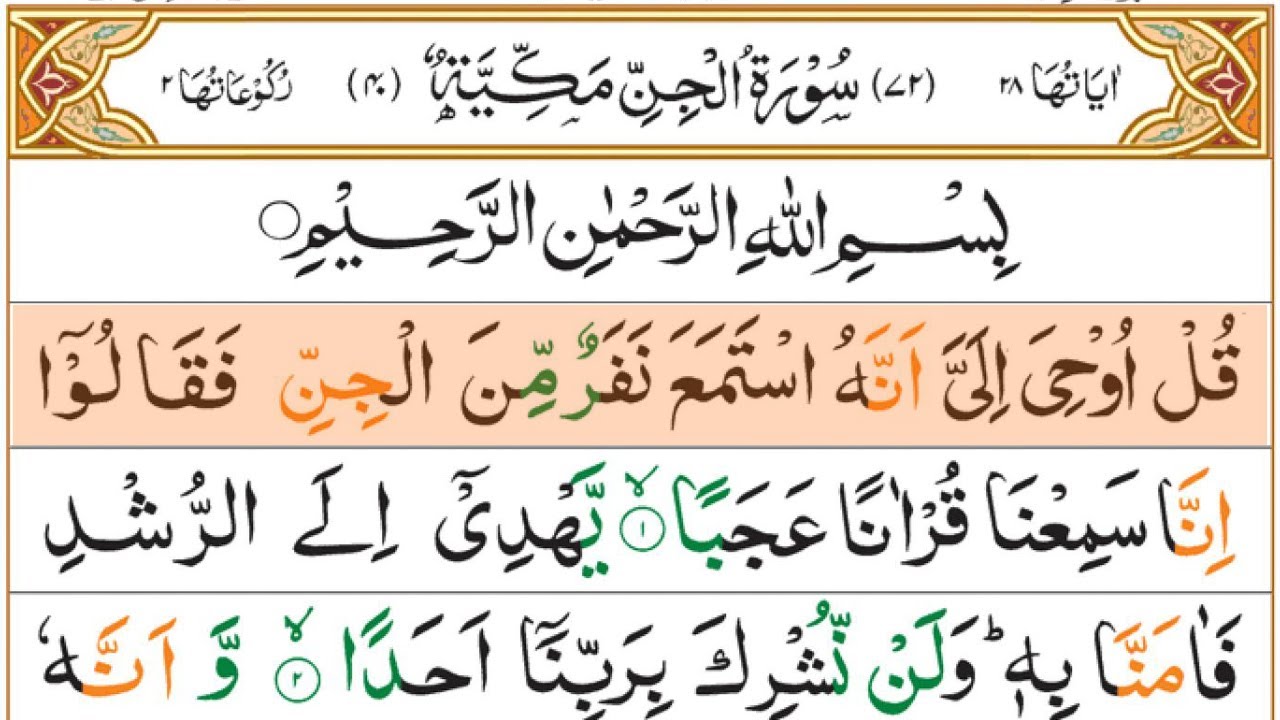 اٰيَاتُهَا ٢٨ (٧٢) سُوْرَةُ الْجِنِّ مَكِّيَّةٌ (٤٠) رُكُوْعَاتُهَا ٢
بِسْمِ اللّٰهِ الرَّحْمٰنِ الرَّحِيْمِ
قُلْ اُوْحِىَ اِلَىَّ اَنَّهُ اسْتَمَعَ نَفَرٌ مِّنَ الْجِنِّ فَقَالُوْٓا
اِنَّا سَمِعْنَا قُرْاٰنًا عَجَبًا ۙ‏ ١ يَّهْدِىْٓ اِلَى الرُّشْدِ
فَاٰمَنَّا بِهٖ ؕ وَلَنْ نُّشْرِكَ بِرَبِّنَاۤ اَحَدًا ۙ‏ ٢ وَّاَنَّهٗ